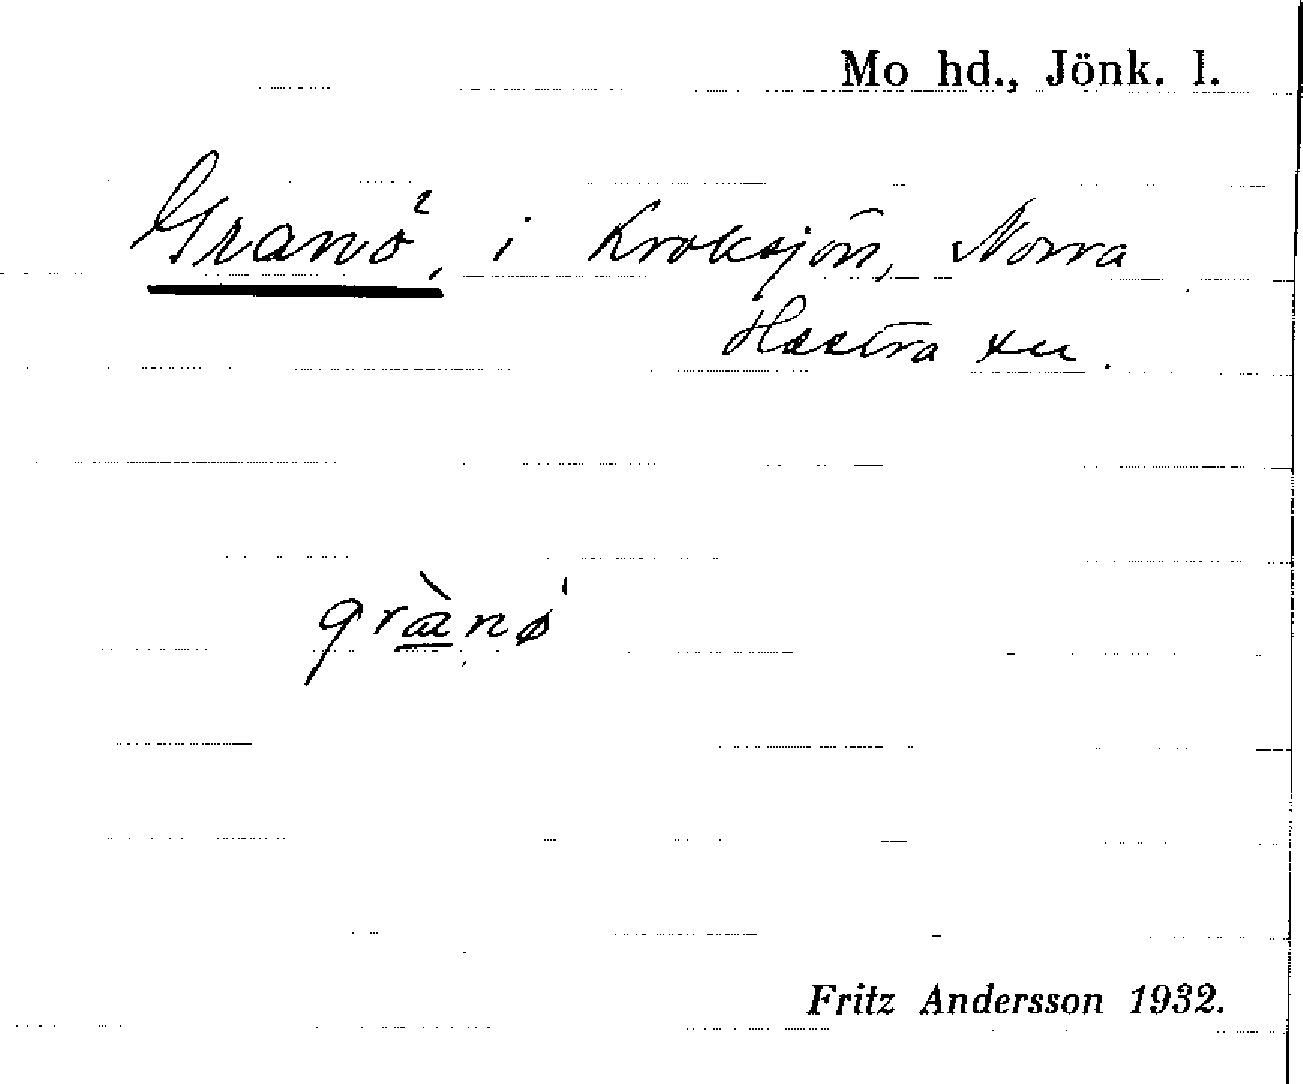 Mo hd., Jönk. l.
Granö, i Kroksjön, Norra
Hestra sn.
grànø
Fritz Andersson 1932.